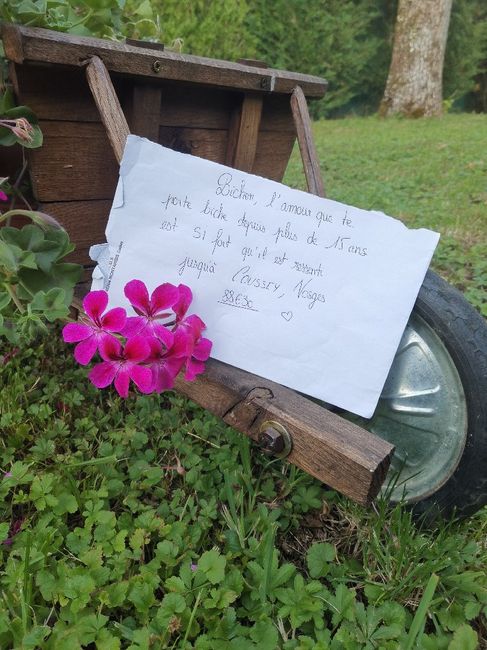 Bichon, l'amour que te
porte biche depuis plus de 15 ans
est si fort qu'il est ressenti
jusqu'à COUSSEY, Vosges
88630 ♡